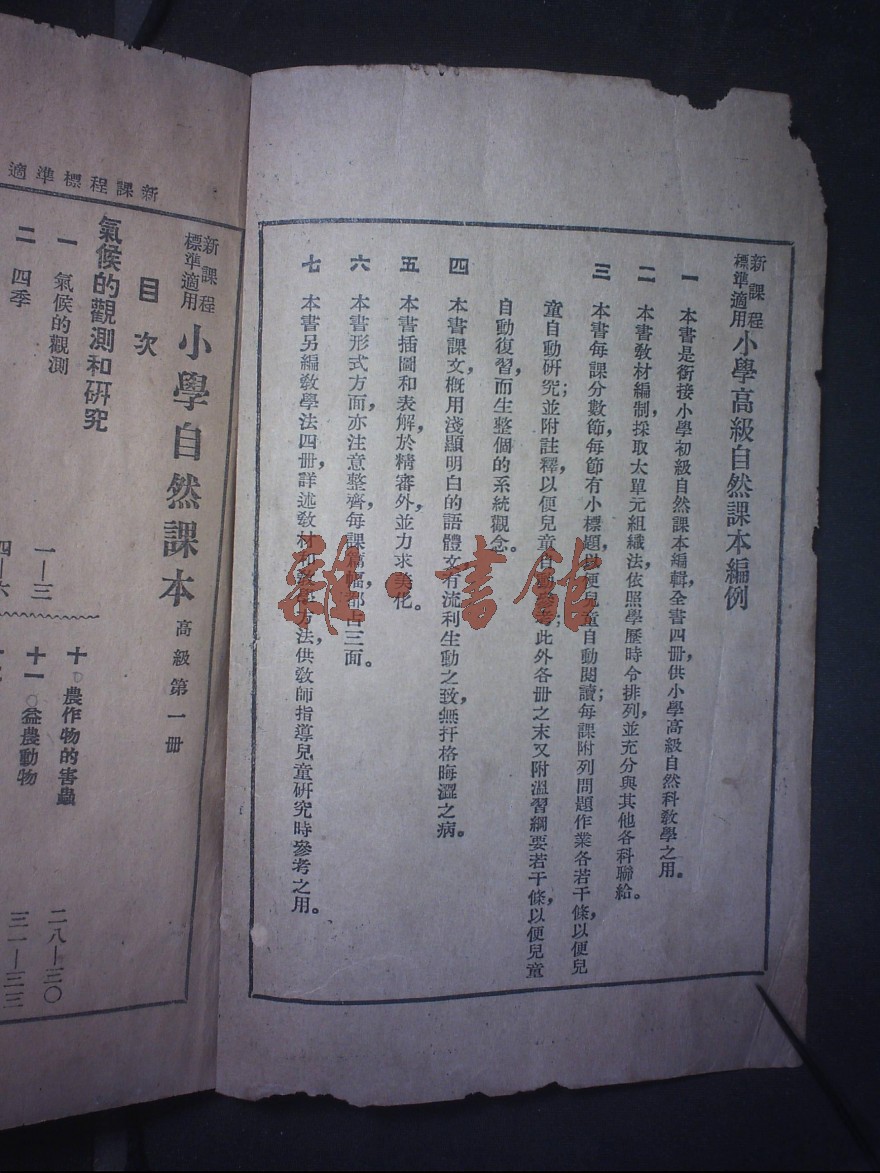 新課程
標準適用
小學高級自然課本編例
一 本書是銜接小學初級自然課本編輯,全書四冊供小學高級自然科教學之用。
二 本書教材編制,採取大單元組織法,依照學歷時令排列,並充分與其他各科聯給。
三 本書每課分數節,每節有小標題,以便兒童自動閱讀;每課附列問題作業各若干條,以便兒
童自動研究;並附註釋,以便兒童自動;此外各冊之末又附溫習綱要若干條,以便兒童
自動復習,而生整個的系統觀念。
四 本書課文,概用淺顯明白的語體文有流利生動之致,無扞格晦澀之病。
五 本書插圖和表解,於精審外,並力求美化。
六 本書形式方面,亦注意整齊,每課篇幅,都占三面。
七 本書另編教學法四冊,詳述教材和方法,供教師指導兒童研究時參考之用。
新課程標準適
新課程
標準適用
小學自然課本 高級第一冊
目次
氣候的觀測和研究
一 氣候的觀測 一—三
二 四季 四—六
十 農作物的害蟲 二八—三〇
十一 益農動物 三一—三三
雜·書館